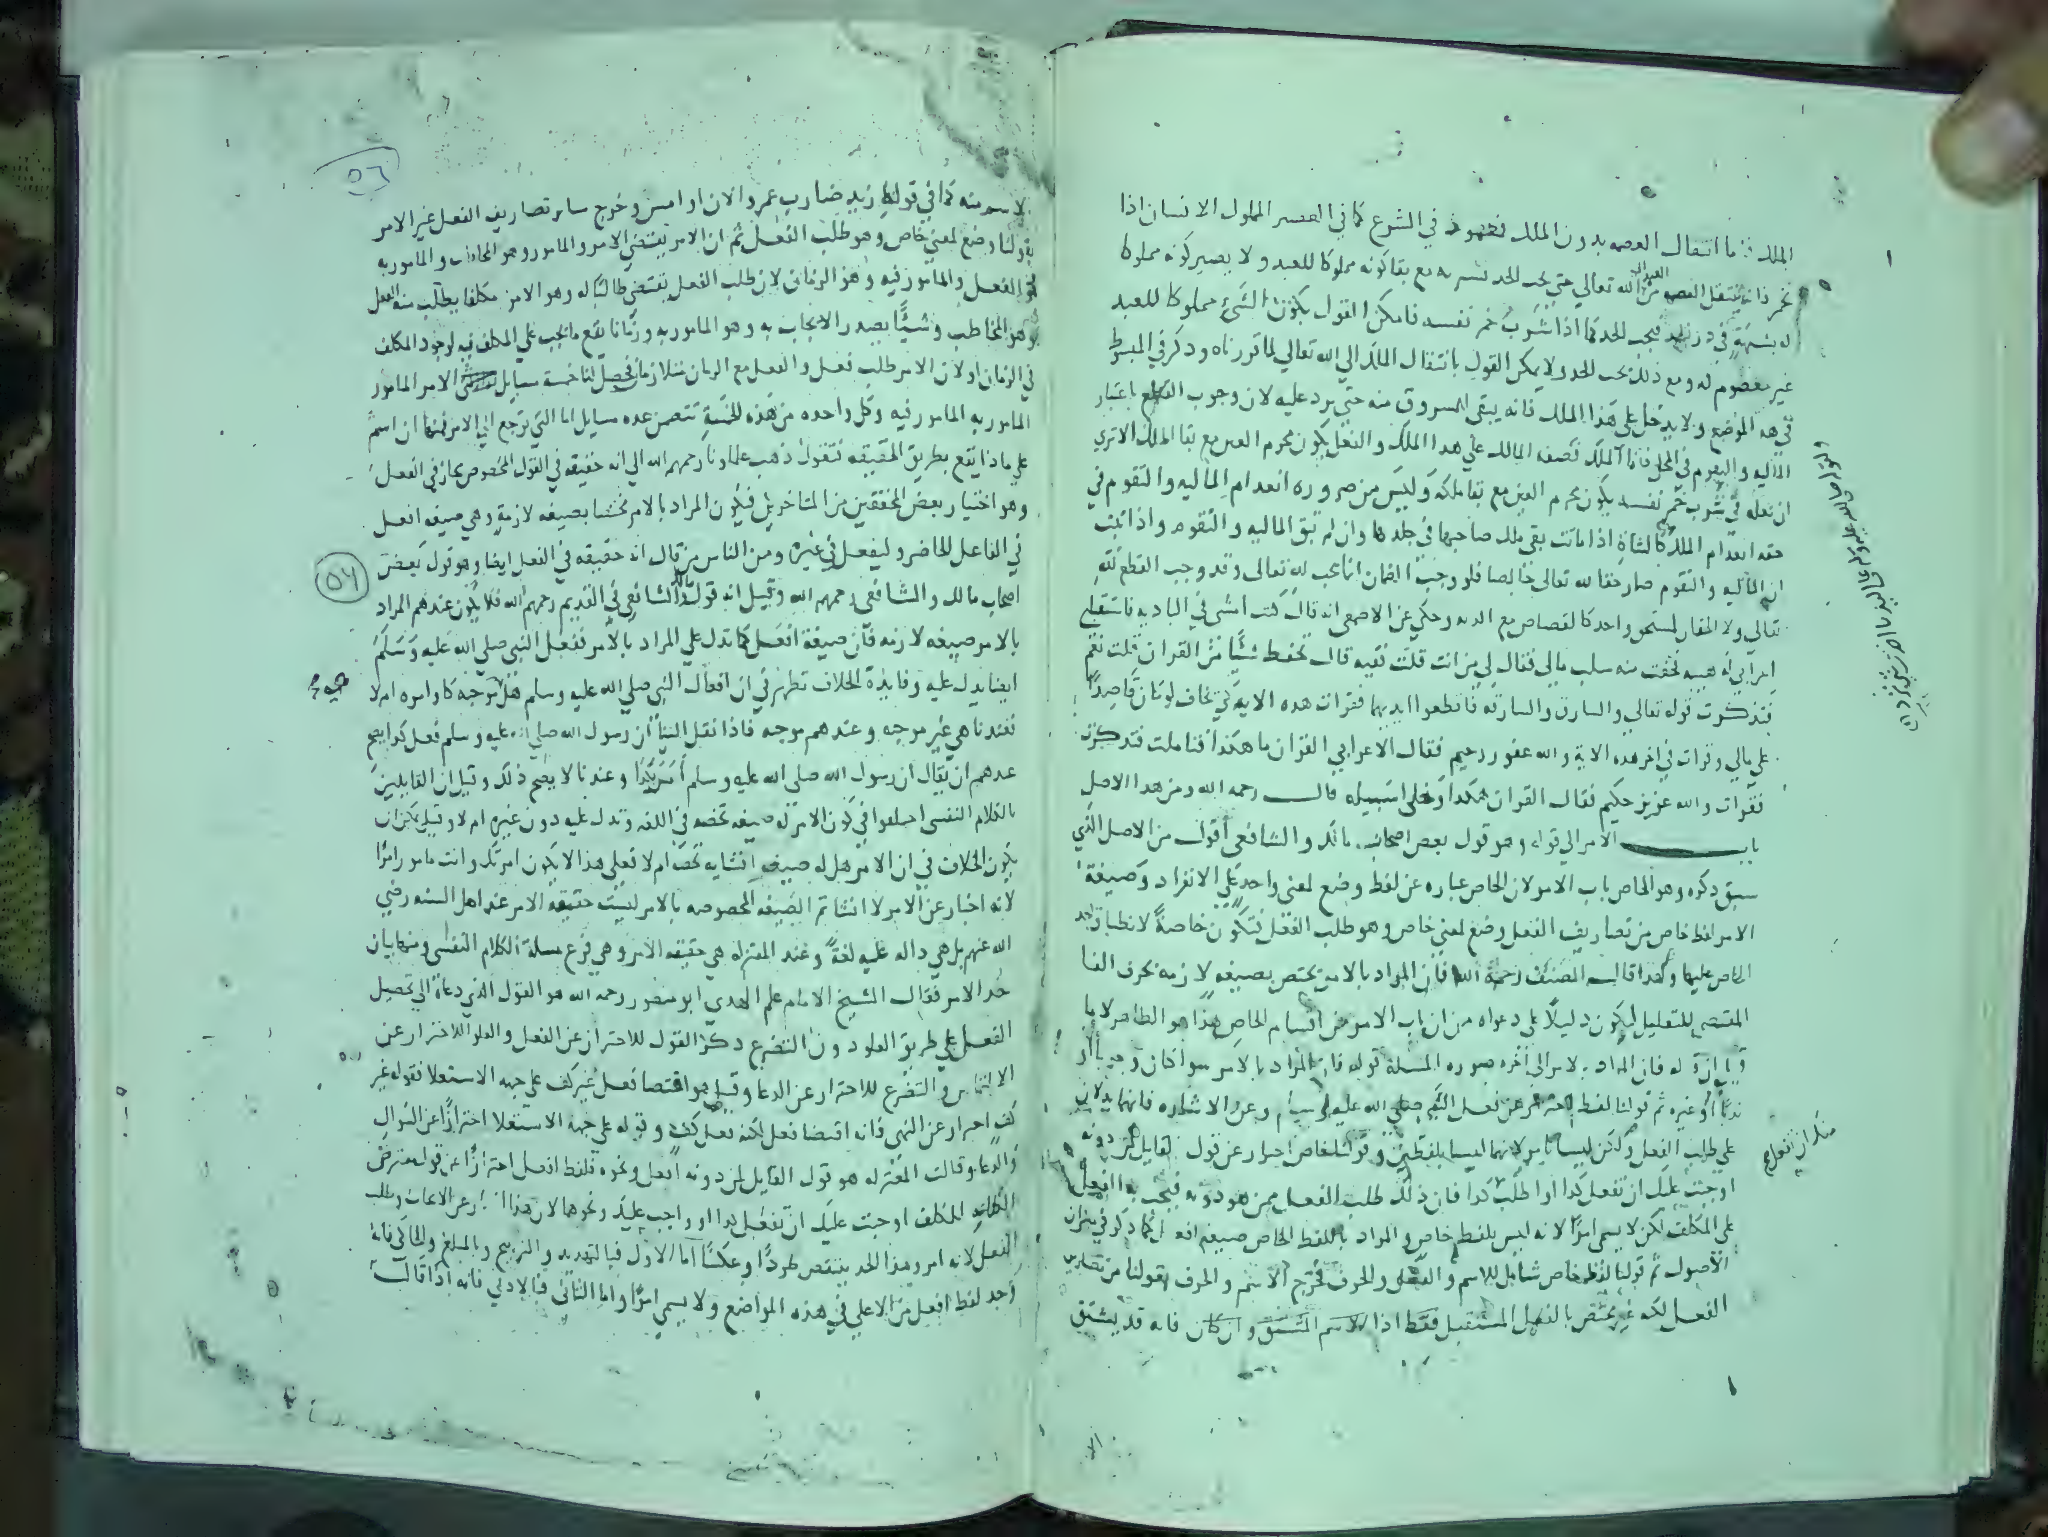 الملك فاما انتقال العصمه بدون الملك فمعهود في الشرع كما في العصير المملوك الانسان اذا
تخمر فانه ينتقل العصمه من العبد الى الله تعالى حتى يجب الحد بشربه مع بقا كونه مملوكا للعبد ولا يصير كونه مملوكا
له بشبهة في درء الحد فيجب الحد كما اذا شرب خمر نفسه فامكن القول بكون الشئ مملوكا للعبد
غير معصوم له ومع ذلك يجب الحد ولا يمكن القول بانتقال الملك الى الله تعالى لما قررناه وذكر في المبسوط
في هذا الموضع ولا يدخل على هذا الملك فانه يبقى للمسروق منه حتى يرد عليه لان وجوب القطع باعتبار
الماليه والتقوم في المحل فاما الملك فصفه المالك على هذا الملك والفعل يكون محرم العين مع بقا الملك الا ترى
ان فعله في شرب خمر نفسه يكون محرم العين مع بقا ملكه وليس من ضروره انعدام الماليه والتقوم في
حقه انعدام الملك كالشاة اذا ماتت بقي ملك صاحبها في جلدها وان لم تبق الماليه والتقوم واذا ثبت
ان الماليه والتقوم صار حقا لله تعالى خالصا فلو وجب الضمان انما يجب لله تعالى وقد وجب القطع لله
تعالى ولا الحقان لمستحق واحد كالقصاص مع الديه وحكي عن الاصمعي انه قال كنت امشي في الباديه فاستقبلني
اعرابي له هيبه فخفت منه سلب مالي فقال لي من انت قلت فقيه قال تحفظ شيئا من القران قلت نعم
فتذكرت قوله تعالى والسارق والسارقه فاقطعوا ايديهما فقرات هذه الايه كي يخاف لو كان قاصدا
على مالي وقرات في اخر هذه الاية والله غفور رحيم فقال الاعرابي القران ما هكذا فتاملت فتذكرت
فقرات والله عزيز حكيم فقال القران هكذا وخلى سبيله قال رحمه الله ومن هذا الاصل
باب الامر الى قوله وهو قول بعض اصحاب مالك والشافعي اقول من الاصل الذي
سبق ذكره وهو الخاص باب الامر لان الخاص عباره عن لفظ وضع لمعنى واحد على الانفراد وصيغة
الامر لفظ خاص من تصاريف الفعل وضع لمعنى خاص وهو طلب الفعل فتكون خاصة لانطباق حد
الخاص عليها ولهذا قال المصنف رحمه الله فان المراد بالامر يختص بصيغه لازمه بحرف الفا
المقتضي للتعليل ليكون دليلا على دعواه من ان باب الامر من اقسام الخاص هذا هو الظاهر لا ما
قيل ان قوله فان المراد بالامر الى اخره صوره المسلة قوله فان المراد بالامر سوا كان وجوبا او
ندبا او غيره ثم قولنا لفظ احتراز عن فعل النبي صلى الله عليه وسلم وعن الاشاره فانهما يدلان
على طلب الفعل ولكن ليسا بامر لانهما ليسا بلفظين وقولنا خاص احتراز عن قول القايل لمن دونه
اوجبت عليك ان تفعل كذا او اطلب كذا فان ذلك طلب الفعل ممن هو دونه فيجب به الفعل
على المكلف لكن لا يسمى امرا لانه ليس بلفظ خاص والمراد باللفظ الخاص صيغه افعل كما ذكر في ميزان
الاصول ثم قولنا لفظ خاص شامل للاسم والفعل والحرف فخرج الاسم والحرف بقولنا من تصاريف
الفعل لكنه غير مختص بالفعل المستقبل فقط اذا الاسم المشتق وان كان فانه قد يشتق
ولنا قوله صلى الله عليه وسلم على اليد ما اخذت حتى ترد
٥٦
الاسم منه كما في قولك زيد ضارب عمرو الان او امس وخرج ساير تصاريف الفعل غير الامر
بقولنا وضع لمعنى خاص وهو طلب الفعل ثم ان الامر يقتضي الامر والمامور وهو المخاطب والمامور به
وهو الفعل والمامور فيه وهو الزمان لان طلب الفعل يقتضي طالبا له وهو الامر مكلفا يطلب منه الفعل
وهو المخاطب وشيئا يصدر الايجاب به وهو المامور به وزمانا يقع ما يجب على المكلف فيه لوجود المكلف
في الزمان او لان الامر طلب فعل والفعل مع الزمان متلازمان فحصل لنا خمسة مسايل الامر المامور
المامور به المامور فيه وكل واحده من هذه الخمسة تتضمن عده مسايل اما التي ترجع الى الامر فمنها ان اسم
على ماذا يقع بطريق الحقيقه فنقول ذهب علماونا رحمهم الله الى انه حقيقه في القول المخصوص مجاز في الفعل
وهو اختيار بعض المحققين من المتاخرين فيكون المراد بالامر مختصا بصيغه لازمة وهي صيغه افعل
في الفاعل الحاضر وليفعل في غيره ومن الناس من قال انه حقيقه في الفعل ايضا وهو قول بعض
٥٤
اصحاب مالك والشافعي رحمهم الله وقيل انه قول مالك والشافعي في القديم رحمهم الله فلا يكون عندهم المراد
بالامر صيغه لازمه فان صيغة افعل كما تدل على المراد بالامر ففعل النبي صلى الله عليه وسلم
ايضا يدل عليه وفايدة الخلاف تظهر في ان افعال النبي صلى الله عليه وسلم هل موجبه كاوامره ام لا
فعندنا هي غير موجبه وعندهم موجبه فاذا نقل الينا ان رسول الله صلى الله عليه وسلم فعل كذا يصح
عندهم ان يقال ان رسول الله صلى الله عليه وسلم امر بكذا وعندنا لا يصح ذلك وقيل ان القايلين
بالكلام النفسي اختلفوا في كون الامر له صيغه تخصه في اللغه وتدل عليه دون غيره ام لا وقيل يمكن ان
يكون الخلاف في ان الامر هل له صيغه انشايه تخصه ام لا فعلى هذا لا يكون امرتك وانت مامور امرا
لانه اخبار عن الامر لا انشا ثم الصيغه المخصوصه بالامر ليست حقيقه الامر عند اهل السنه رضي
الله عنهم بل هي داله عليه لغة وعند المعتزله هي حقيقه الامر وهي فرع مسلة الكلام النفسي ومنها بيان
حد الامر فقال الشيخ الامام علم الهدى ابو منصور رحمه الله هو القول الذي دعاه الى تحصيل
الفعل على طريق العلو دون التضرع ذكر القول للاحتراز عن الفعل والعلو للاحتراز عن
الالتماس والتضرع للاحتراز عن الدعا وقيل هو اقتضا فعل غير كف على جهه الاستعلا فقوله غير
كف احتراز عن النهي فانه اقتضا فعل لكنه فعل كف وقوله على جهة الاستعلا احترازا عن السوال
والدعا وقالت المعتزله هو قول القايل لمن دونه افعل ونحوه فلفظ افعل احترازا عن قول مفترض
الطاعة للمكلف اوجبت عليك ان تفعل كذا او واجب عليك ونحوها لان هذا اخبار عن الايجاب وطلب
الفعل لانه امر وهذا الحد ينتقض طردا وعكسا اما الاول فبالتهديد والتربيح والمبلغ والحاكي فانه
وجد لفظ افعل من الاعلى في هذه المواضع ولا يسمى امرا واما الثاني فبالادنى فانه اذا قال